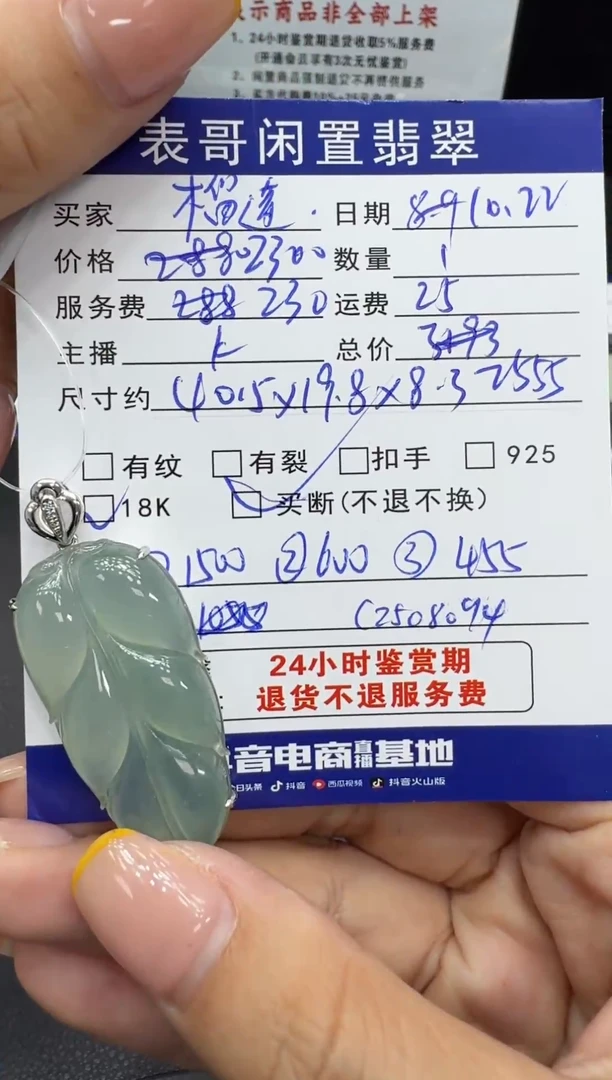 示商品非全部上架
1、24小时鉴赏期退货收取5%服务费
(开通会员享有3次无忧鉴赏)
表哥闲置翡翠
买家 榴莲. 日期 8-9 10.22
价格 2880 2300 数量 1
服务费 288 230 运费 25
主播 k 总价 3193
尺寸约 40.5x19.8x8.3 2555
有纹 有裂 扣手 925
18K 买断(不退不换)
1500 ②600 ③455
C2508094
24小时鉴赏期
退货不退服务费
音电商直播基地
日头条 抖音 西瓜视频 抖音火山版